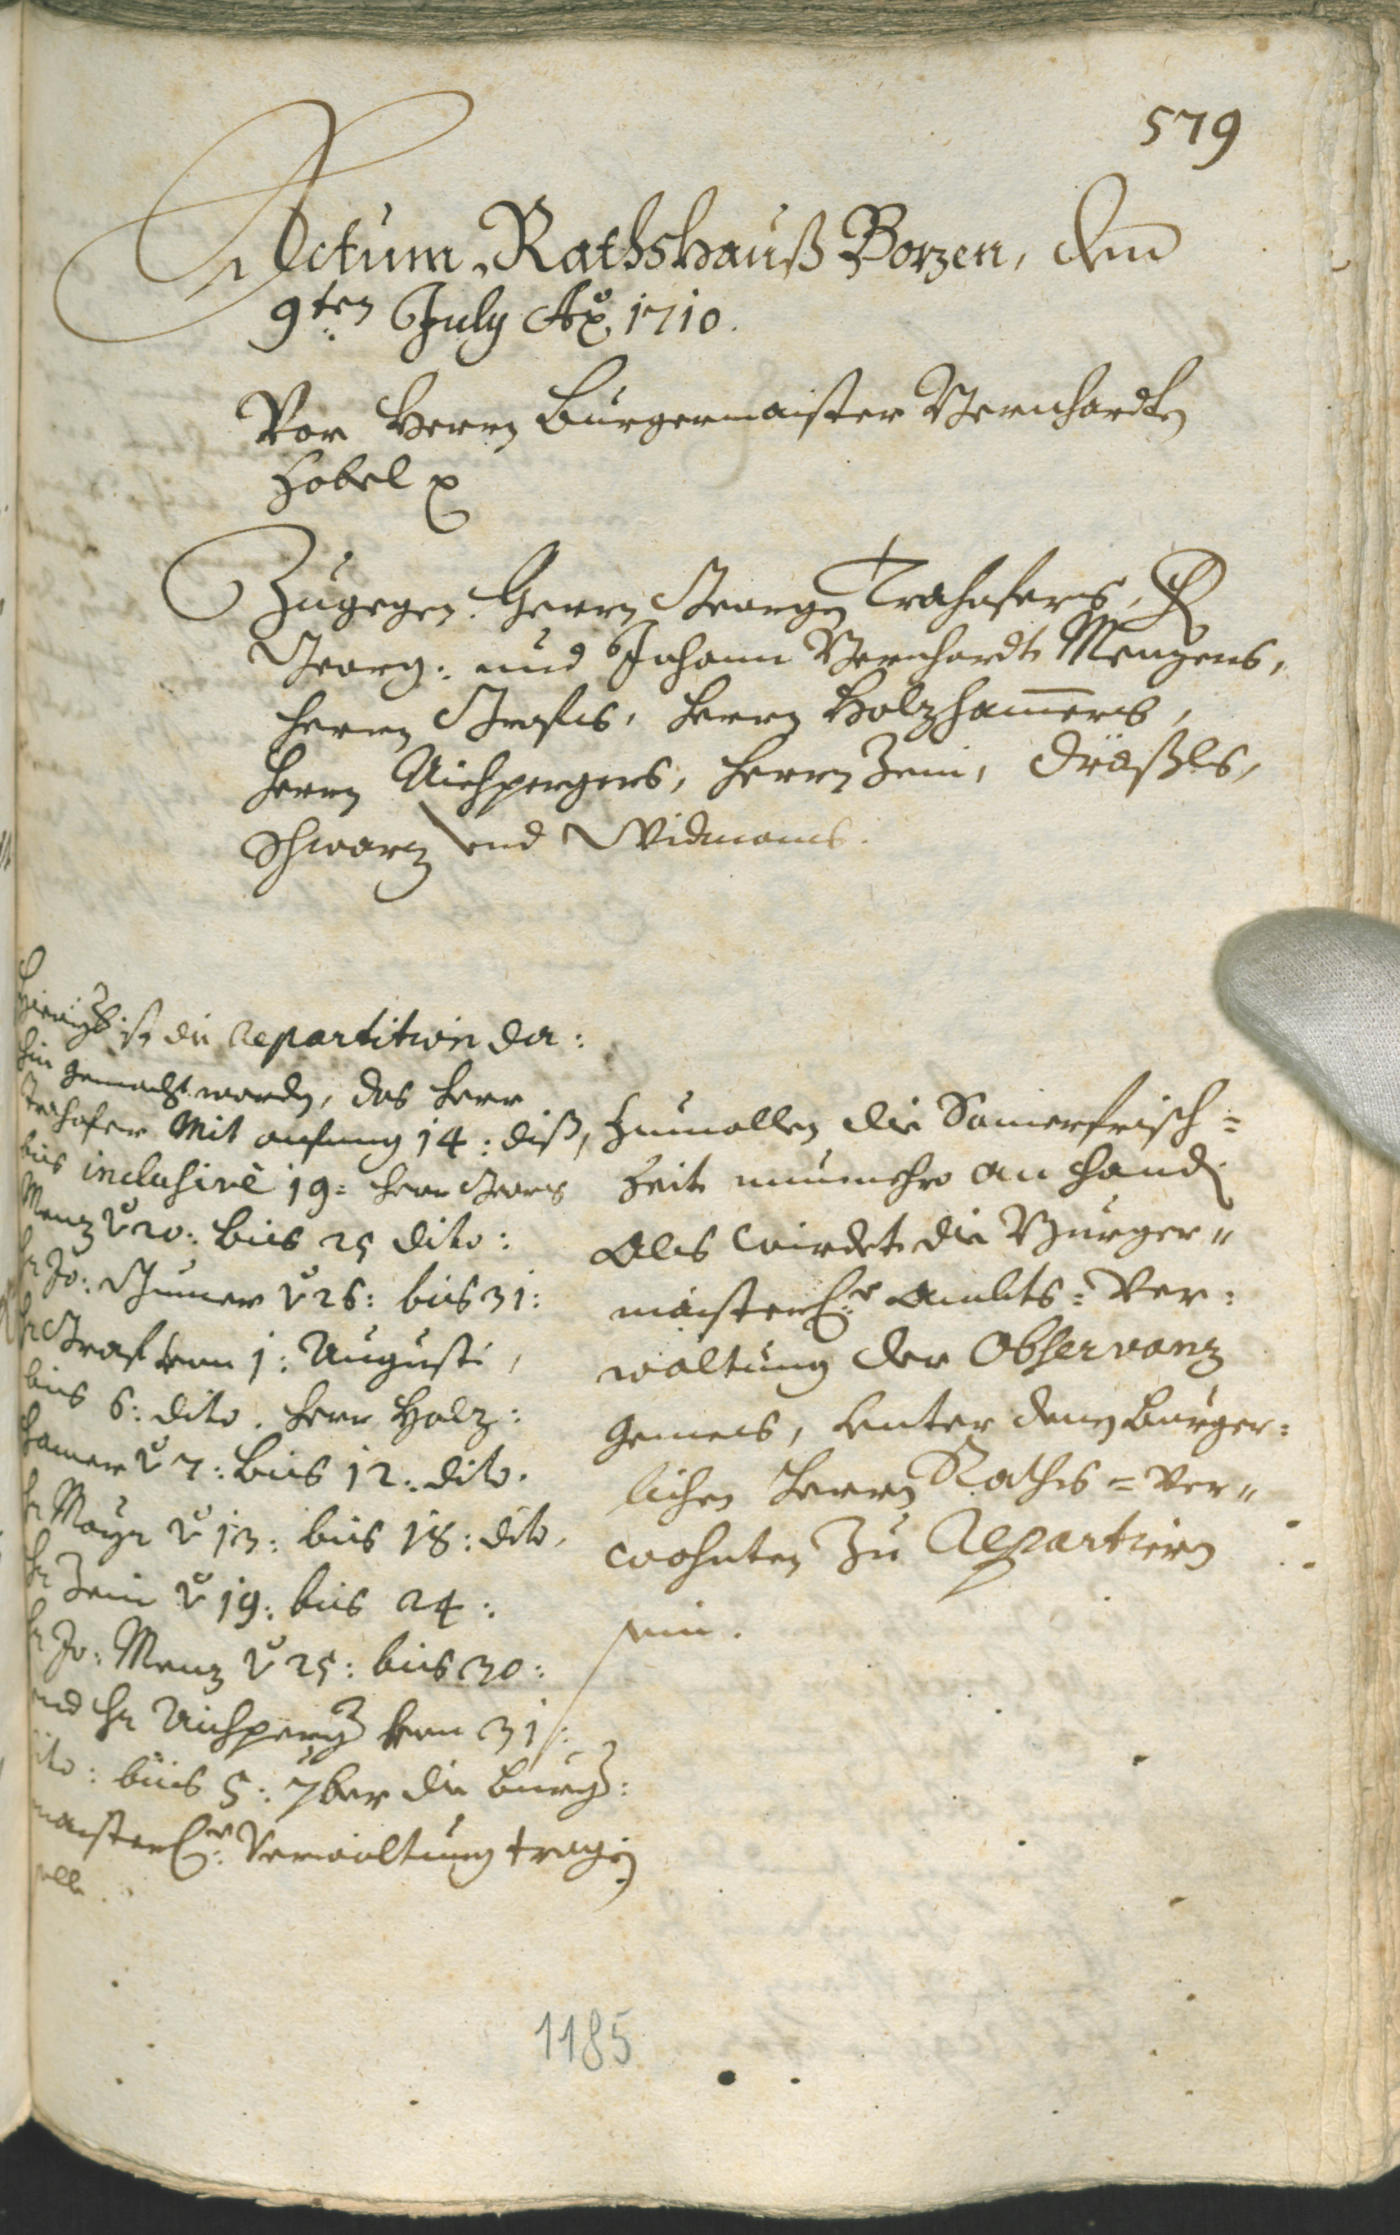 579
Actum Rathshauß Bozen, den
9ten July Ao 1710.
Vor Herrn Burgermaister Bernhardten
Hobel
Zugegen: Herrn Georgen Trahofers,
Georg: und Johann Bernhardt Menzens,
Herrn Grafls, Herrn Holzhamers,
Herrn Aichpergers, Herrn Zeni, Dräxls,
Schwarz und Widmans.
Hierauf ist die Repartition da:
hin gemacht worden, das Herr
Trahofer Mit anfang 14: diß,
bis inclusivè 19: Herr Georg
Menz v 20: bis 25 dito:
Hr Jo: Gumer v 26: bis 31:
Hr Graf vom 1: Augusti,
bis 6: dito. Herr Holz:
hamer v 7: bis 12: dito.
Hr Mayr v 13: bis 18: dito.
Hr Zeni v 19: bis 24:
Hr Jo: Menz v 25: bis 30:
und Hr Aichperg vom 31:
dito: bis 5: 7ber die burg:
maister Verwaltung tragen
solle.
Zumallen die Somerfrisch=
zeit nunmehr an hand
Als wirdet die Burger"
maister Ambts= Ver:
waltung der Observanz
gemeß, unter denen burger=
lichen Herrn Raths= Ver"
wohnten zu Repartirn
sein.
1185